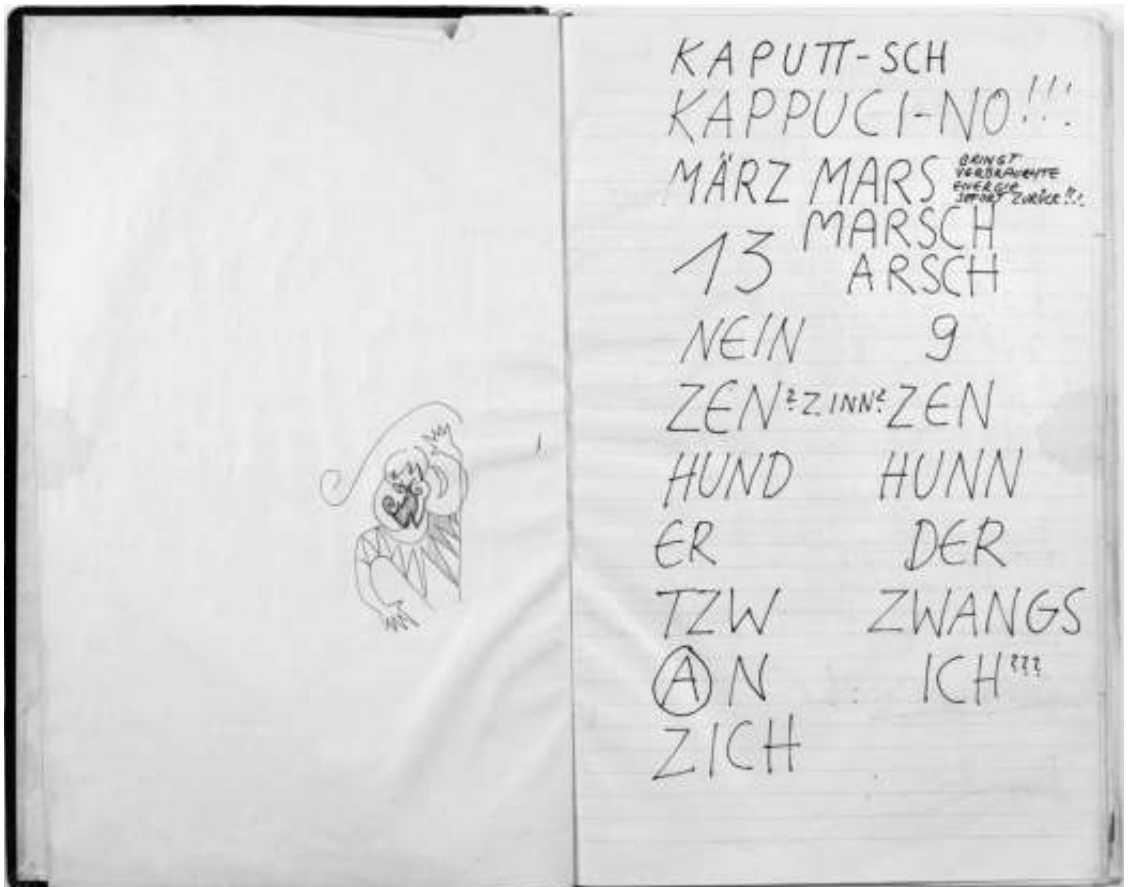 KAPUTT-SCH
KAPPUCI-NO!!!
MÄRZ MARS BRINGT
VERBRAUCHTE
ENERGIE
SOFORT ZURÜCK!!!
MARSCH
13 ARSCH
NEIN 9
ZEN ?ZINN? ZEN
HUND HUNN
ER DER
TZW ZWANGS
AN ICH???
ZICH